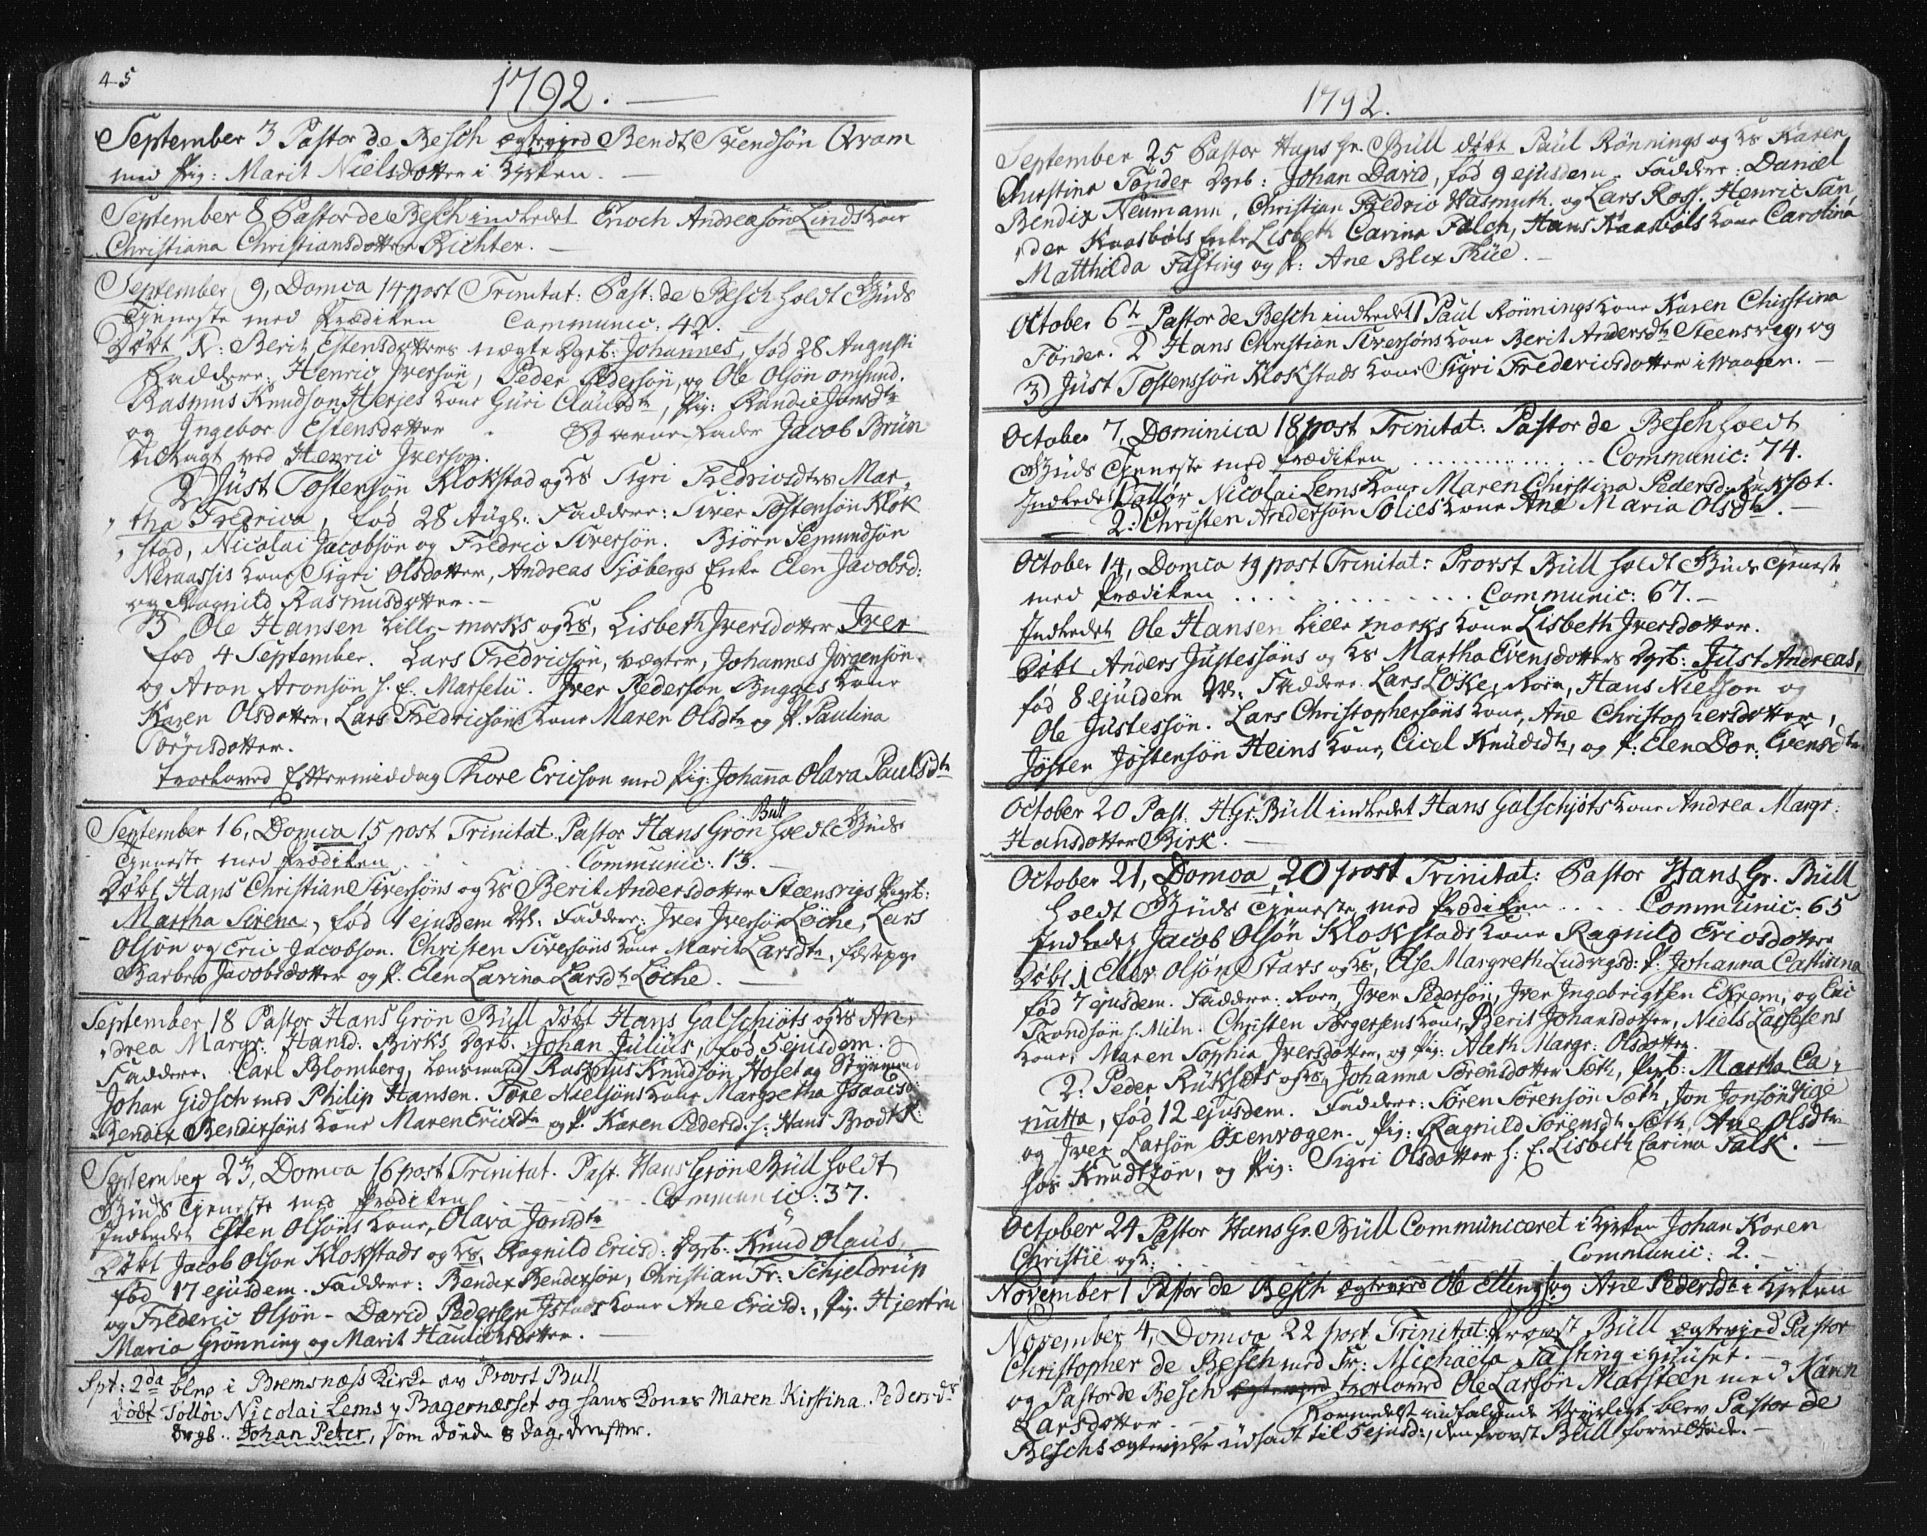 45
1792.
September 3 Pastor de Besch ægtevied Bendt Svendsøn Qvam
med Pig: Marit Nielsdotter i Kirken.
September 8 Pastor de Besch indledet Enoch Andreasøn Linds kone
Christiana Christiansdotter Richter.
September 9, Domca 14 post Trinitat: Past: de Besch holdt Guds
Tjeneste med Prædiken Communic: 42.
Døbt N: Berit Estensdotters uægte Dgb: Johannes, fød 28 Augusti
Faddere: Henric Iversøn, Peder Pedersøn, og Ole Olsøn omsund.
Rasmus Knudsøn Herjes kone Guri Clausdtr, Pig: Randie Jonsdtr
og Ingebor Estensdotter. Barne-Fader Jacob Brün
udlagt ved Henric Iversøn.
2, Just Tostensøn Klokstad og Hs Sigri Fredricsdtrs Mar-
tha Fredrica, fød 28 Aug: Faddere: Siver Tostensøn Klok
stad, Nicolai Jacobsøn og Fredric Siversøn. Biørn Semundsøn
Neraasis kone Sigri Olsdotter, Andreas Siøbergs Enke Elen Jacobsd:
og Ragnild Rasmusdotter.
3 Ole Hansen Lille-morks og Hs, Lisbeth Iversdotter Iver
fød 4 September. Lars Fredricsøn, vægter, Johannes Jørgensøn.
og Aron Aronsøn h. E. Marselü. Iver Pedersøn Bugges kone
Karen Olsdotter, Lars Fredricsøns kone Maren Olsdtr og P. Paulina
Sørrisdotter.
troloved Eftermiddag Thore Ericson med Pig: Johanna Olava Paulsdtr
September 16, Domca 15 post Trinitat. Pastor Hans Grøn Bull holdt Guds
Tjeneste med Prædiken Communic: 13.
Døbt Hans Christian Siversøns og Hs Berit Andersdotter Steensvigs Pgb:
Martha Sirena, fød 1 ejusdem Faddere: Iver Iversøn Løche, Lars
Olsøn og Eric Jacobsøn. Christen Siversøns kone Marit Larsdtr,
Barbro Jacobsdotter og P. Elen Lavina Larsdtr Løche.
September 18 Pastor Hans Grøn Büll døbt Hans Galschiøts og Hs An-
drea Margr. Hansd. Birks Dgb. Johan Julius, fød 5 ejusdem.
Faddere. Carl Blomberg, Lænsmand Rasmus Knudsøn Hoset og Styrmand
Johan Gidsch med Philip Hansen. Tore Nielsøns kone Margretha Isaacsd
Bendix Bendixsøns kone Maren Ericsdtr og P. Karen Pedersd: h: Hans Brodtk:
September 23, Domca 16 post Trinitat. Past. Hans Grøn Büll holdt
Guds Tjeneste med Prædiken Communic: 37.
Indledet Esten Olsøns kone, Olava Jonsdtr
Døbt Jacob Olsøn Klokstads og Hs, Ragnild Ericsd: Dgb: Knud Olaus,
fød 17 ejusdem. Faddere: Bendix Bendixsøn, Christian Fr: Schjeldrup
og Frederic Olsøn - David Pedersen Istads kone Ane Ericsd:, Pig: Hjertru
Maria Grønning og Marit Hauichsdotter.
Spt: 2da blev i Bremsnæss Kirke av Provst Bull
døbt Tollør Nicolai Lems y Bagernæsset og hans Kones Maren Kirstina Pedersd.
Drgb.: Johan Peter, som døede 8 dage derefter.
1792.
September 25 Pastor Hans Gr. Büll døbt Paul Rønnings og Hs Karen
Christina Tønder Dgb: Johan David, fød 9 ejusdem. Faddere: Daniel
Bendix Neumann, Christian Fredric Wasmuth, og Lars Rog. Henric San
der Kaasbøls Enke Lisbeth Carina Falch, Hans Kaasbøls kone Carolina
Matthilda Fasting og P: Ane Blix Thüe.
October 6te Pastor de Besch indledet 1 Paul Rønnings kone Karen Christina
Tønder. 2 Hans Christian Siversøns kone Berit Andersdtr Steensvig, og
3) Just Tostenssøn Klokstads kone Sigri Fredericsdotter i Waagen.
October 7, Dominica 18 post Trinitat: Pastor de Besch holdt
Guds Tjeneste med Prædiken Communic: 74.
Indledet Tollør Nicolai Lems kone Maren Christina Pedersd.
2: Christen Andersøn Solies kone Ane Maria Olsdtr.
October 14, Domca 19 post Trinitat: Provst Büll holdt Guds Tjeneste
med Prædiken Communic: 67.
Indledet Ole Hansen Lille morks kone Lisbeth Iversdotter.
Døbt Anders Justessøns og Hs Martha Evensdotters Dgb: Just Andreas,
fød 8 ejusdem Faddere. Lars Løke, Roen, Hans Nielson og
Ole Justessøn. Lars Christophersøns kone, Ane Christophersdotter,
Josten Jøstensøn Heins kone, Cicel Knudsdtr, og P: Elen Dor: Evensdtr
October 20 Past. H. Gr. Büll indledet Hans Galschjøts kone Andrea Margr:
Hansdotter Birk.
October 21, Domca, 20 post Trinitat: Pastor Hans Gr. Büll
holdt Guds Tjeneste med Prædiken Communic: 65
Indledet Jacob Olsøn Klokstads kone Ragnild Ericsdotter
Døbt 1 Ellev. Olsøn Stavs og Hs, Else Margreth Ludvigsd: P. Johanna Cathrina
fød 7 ejusdem. Faddere: Roen, Iver Pedersøn, Iver Ingebrigtsen Ekrem, og Eric
Trondsøn h. Miln. Christen Jørgensens kone, Berit Johansdotter, Niels Lassesens
kone, Maren Sophia Iversdotter, og Pig: Aleth Margr: Olsdotter.
2: Peder Rüksets og Hs, Johanna Sørensdotter Sæth, Pgb: Martha Ca-
nutta, fød 12 ejusdem. Faddere: Søren Sørensøn Sæth, Jon Jonsøn Tige
og Iver Larsøn Oxenvogen. Pig: Ragnild Sørensdtr Sæth, Ane Olsdtr
hos Knudtzøn, og Pig: Sigri Olsdotter h: E. Lisbeth Carina Falk.
October 24 Pastor Hans Gr. Büll Communiceret i Kirken Johan Koren
Christie og H: Communic: 2.
November 1 Pastor de Besch ægtevied Ole Ellingsøn Ane Pedersdtr i Kirken
November 4, Domca 22 post Trinitat: Provst Büll ægtevied Pastor
Christopher de Besch med Fr: Michaëla Fasting i Huset.
og Pastor de Besch ægtevied troloved Ole Larsøn Marsteen med Karen
Larsdotter formedelst indfaldende Veyrligt blev Pastor de
Beschs ægtevielse udsadt til 5 ejusd:, den Provst Büll forrettede.